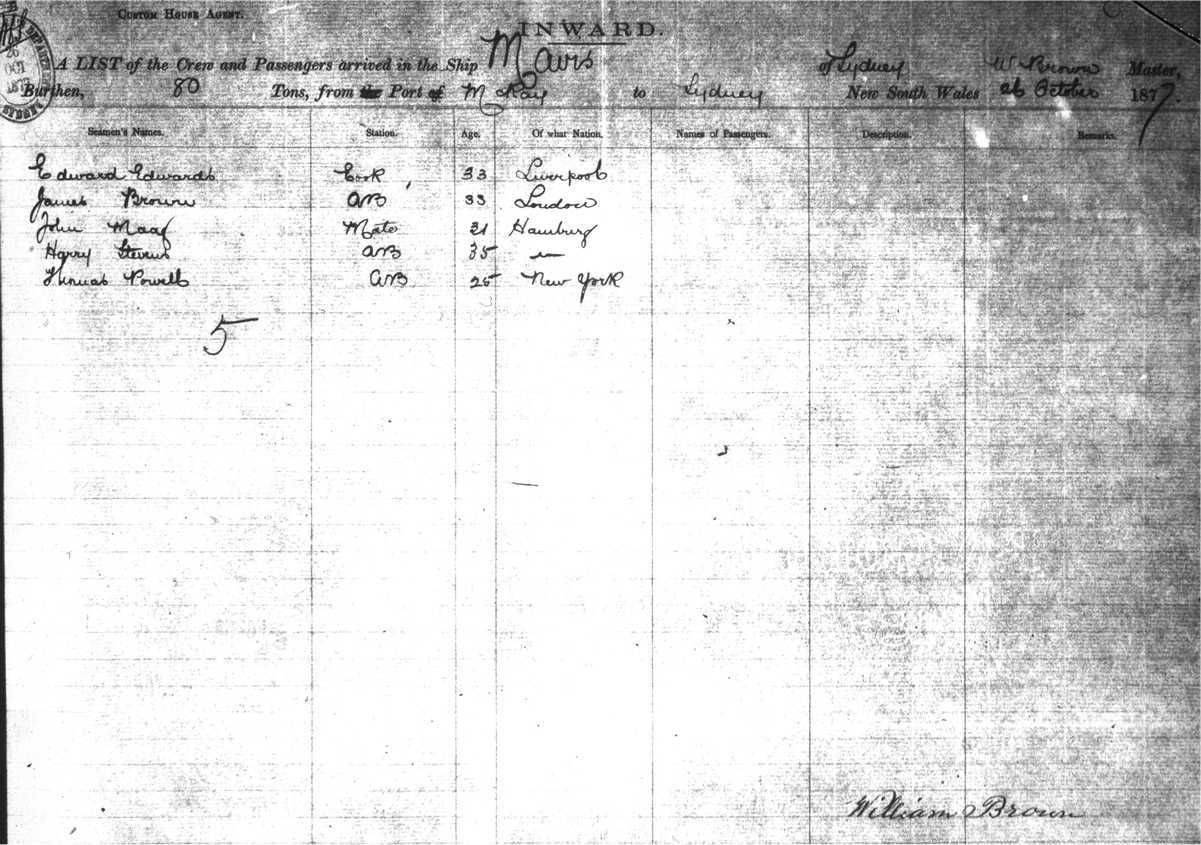 CUSTOM HOUSE AGENT.
INWARD.
26 OCT 1877
SYDNEY
A LIST of the Crew and Passengers arrived in the Ship Mars of Sydney W Brown Master,
Burthen, 80 Tons, from the Port of McKay to Sydney New South Wales 26 October 1877.
Seamen's Names. Station. Age. Of what Nation. Names of Passengers. Description. Remarks.
Edward Edwards Cook 33 Liverpool
James Brown AB 33 London
John Mate 31 Hamburg
Harry Stevens AB 35 —
Thomas Powell AB 25 New York
5
William Brown